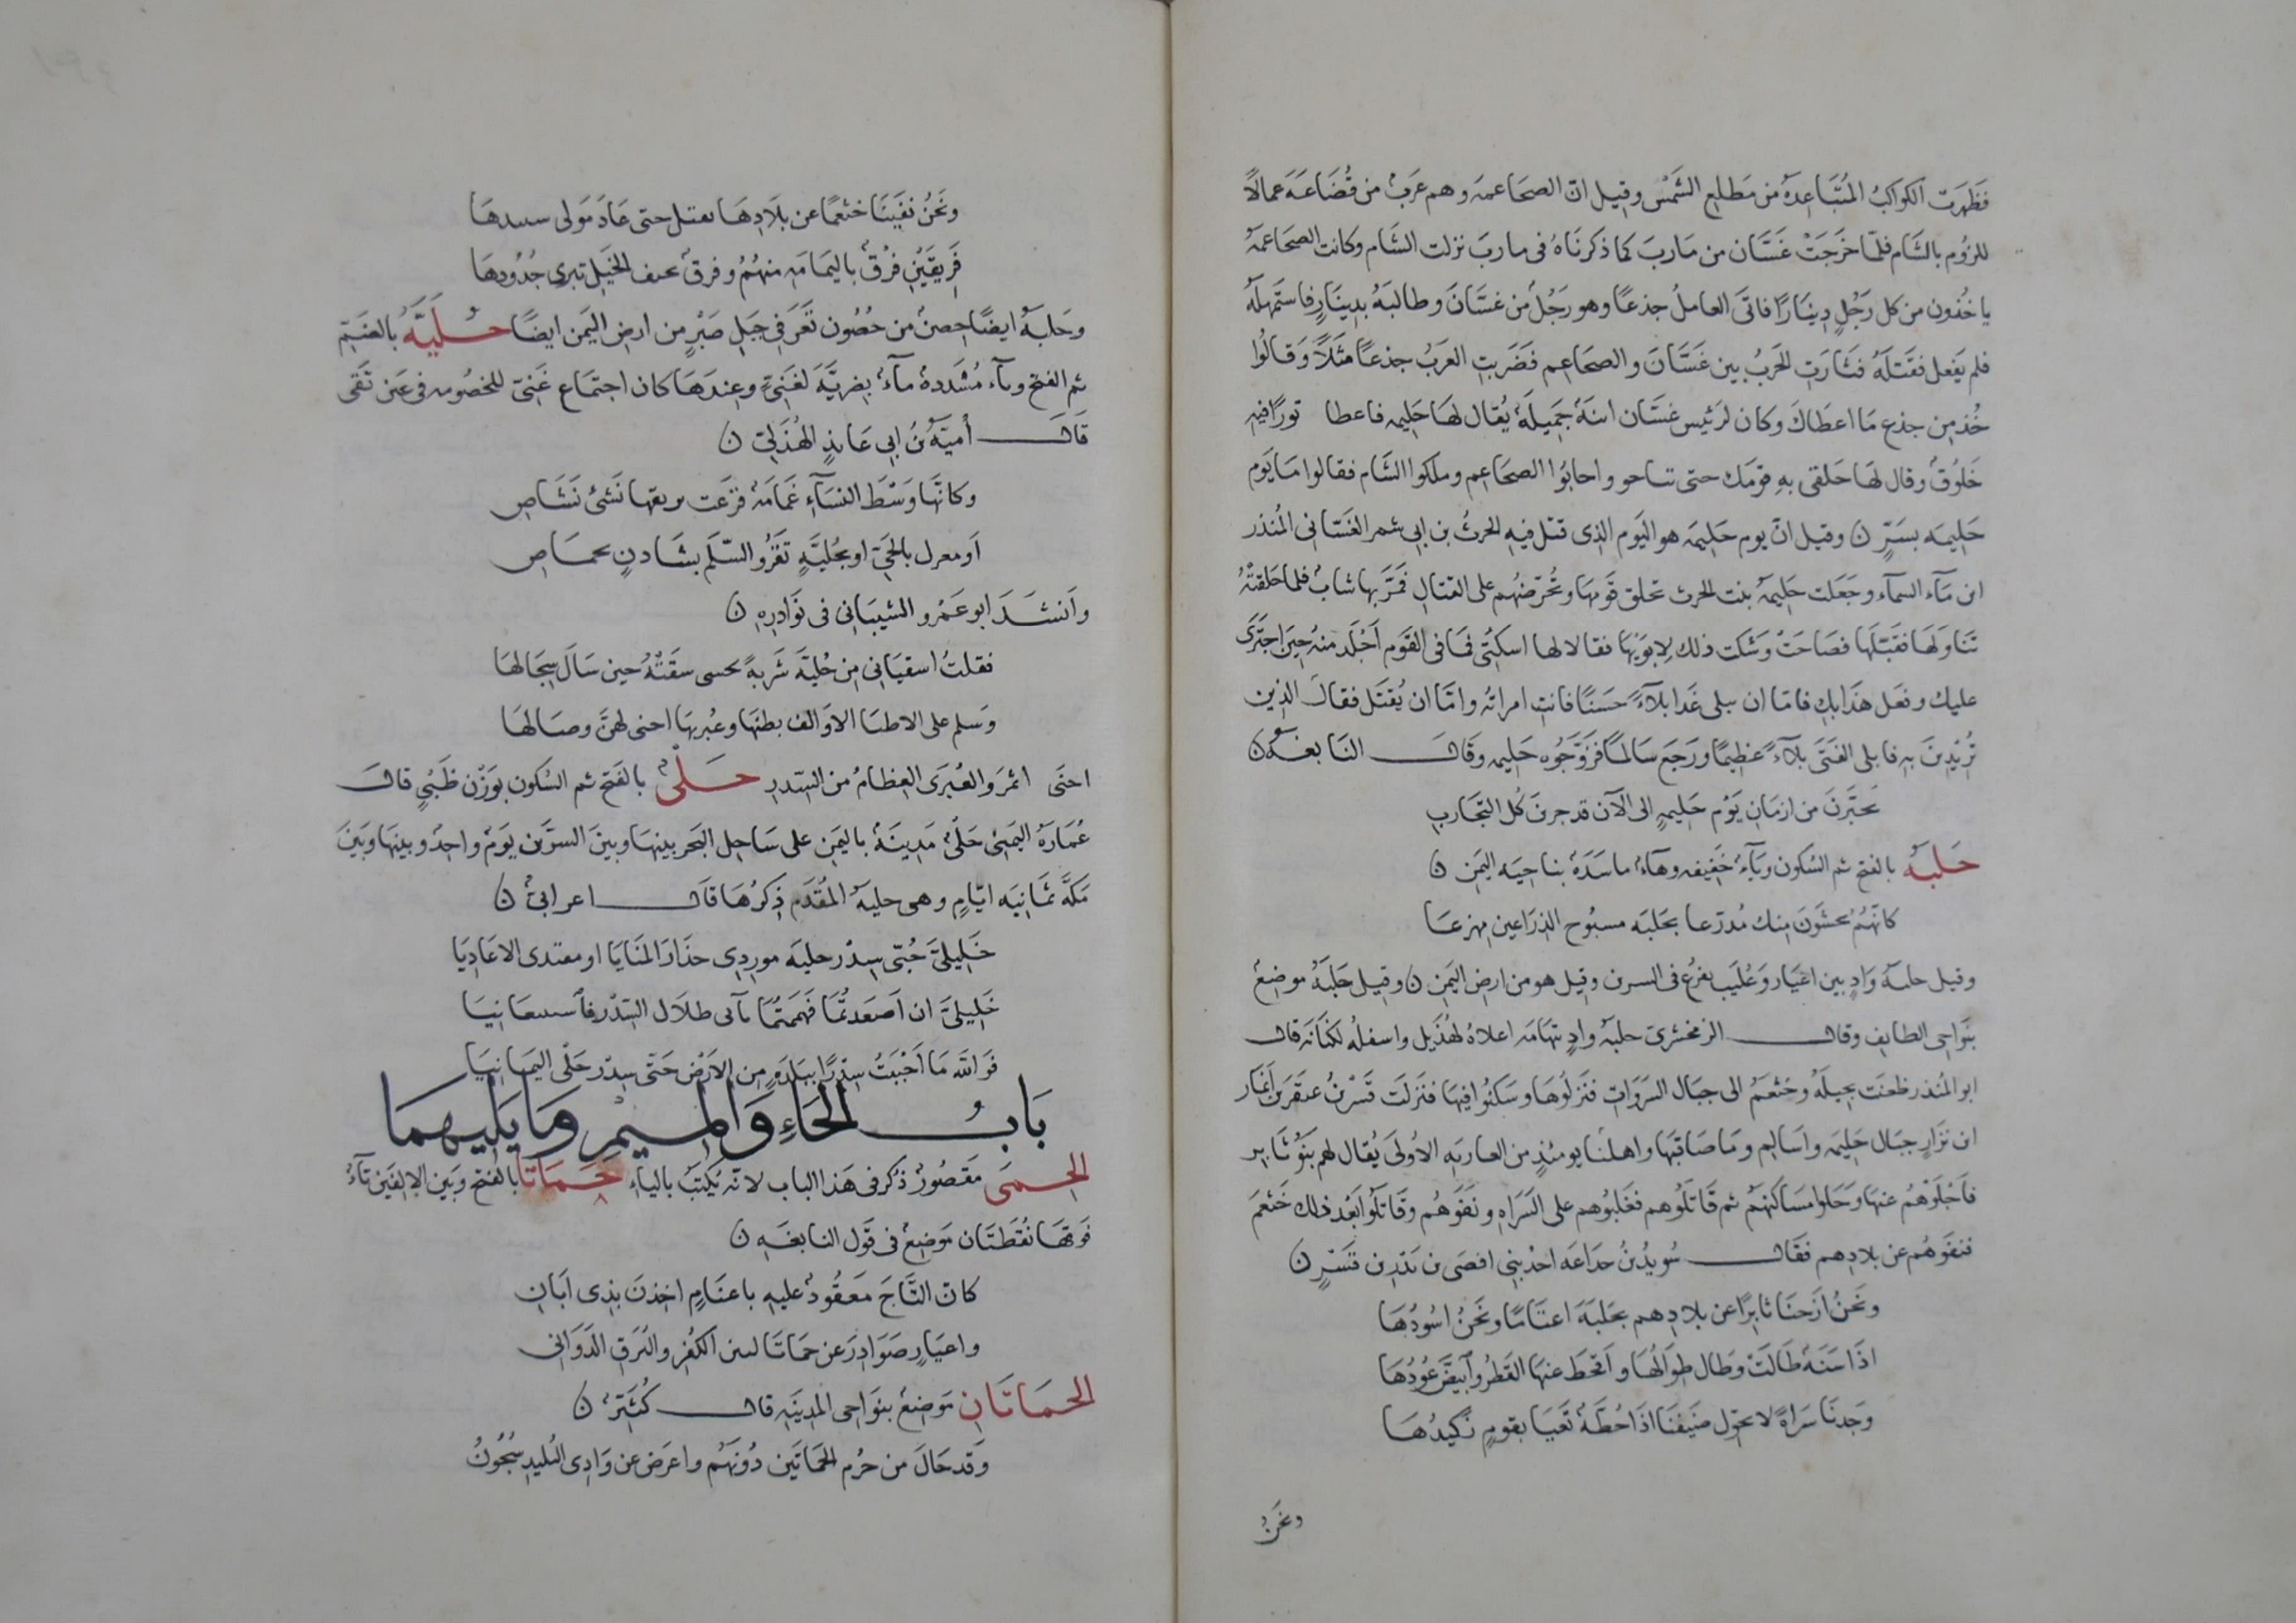 فَظَهَرَت الكواكبُ المُتَبَاعِدَة من مَطلعِ الشَمْس وقيل انّ الضجَاعمَه وهم عَرَبٌ من قُضَاعَةَ عمالاً
للرُوم بالشَام فلمّا خرَجَتْ غَسَّان من مَاربَ كما ذكرنَاهُ فى ماربَ نزلت الشَام وكانت الضجَاعمَة
ياخُذون من كل رَجُلٍ دِينَارًا فاتَى العاملُ جذعًا وهو رَجُلٌ من غسَّانَ وطالبَهُ بدِينَارٍ فاستَمهلَهُ
فلم يَفعل فقَتَلَهُ فثَارَت الحَربُ بين غَسَّانَ والضجَاعِم فَضَرَبتِ العَرَبُ جذعًا مَثَلاً وَقَالُوا
خُذ مِن جذع مَا اعطَاكَ وكان لرَئيس غسَّان ابنَةٌ جَمِيلَةٌ يُقال لهَا حَلِيمه فاعطا تورًا فيهِ
خَلُوقٌ وقال لهَا خلقى بهِ قومَك حتى تناحو واحابُوا الضجَاعِم وملكوا الشَام فقالوا مَا يَوم
حَلِيمَه بسَرٍّ ن وقيل انّ يوم حَلِيمَه هو اليَوم الذى قتل فيهِ الحرثُ بن ابى شمر الغَسّانى المُنذر
ابن مَآء السمآء وجَعَلت حَلِيمَة بنت الحرث تخلق قَومهَا وتُحرّضُهم على القتال فَمَرَّ بها شابٌ فلما خلقتْهُ
تَنَاولَهَا فقَبّلَها فصَاحَتْ وَشَكت ذلك لِابوَيْها فقالا لها اسكتى فمَا فى القَوم اَجْلَد منهُ حِينَ اجتَرَى
عليك وفعَل هَذا بكِ فامّا ان يبلى غَدا بلآءً حَسَنًا فانتِ امراتُه وامَّا ان يُقتَل فقالَ الذين
تُرِيْدِينَ بهِ فابلى الفَتَى بلآءً عظِيمًا ورَجَعَ سَالماً فزَوَّجُوه حَلِيمه وقَال النَابغَهُ ن
تُخيّرنَ من ازمَانِ يَوْم حَلِيمةٍ الى الآن قد جربنَ كُل التّجَاربِ
حَلبَه بالفتح ثم السُكون وبَآءٌ خَفِيفه وهآءٌ مَاسَدَةٌ بناحيَه اليَمَن ن
كانَّهُم يخشَونَ منك مُدرّعا بحَلبَه مسبُوح الذرَاعين مهزعَا
وقيل حلبة وَادٍ بين اعيَار وَعُلَيَب يفرُغ فى السرين وقيل هو من ارض اليَمَن ن وقيل حَلبَةُ موضِعٌ
بنَواحِى الطايِف وقال الزمخشرىّ حلبَة وادٍ بتهامَه اعلاهُ لهُذَيل واسفلُه لكنَانَة قال
ابو المُنذر ظعنَت بجيلَةُ وخثعَمُ الى جبَال السَرَوَات فنَزلُوهَا وسَكنُوا فِيهَا فنَزلَت قَسْرُ بنُ عبقَرَ بن اَنمَار
ابن نزَارٍ جبَال حَلِيمَه واسَالِم ومَا صَاقبَها واهلنَا يومئذٍ من العَاربَه الاُولَى يُقال لهم بَنو ثابر
فاَجْلَوْهُمُ عنهَا وَحَلوا مسَاكنَهُم ثم قَاتَلُوهم فغَلبُوهم على السَرَاهِ ونفَوهُم وقَاتَلُوا بَعْد ذلك خَثعمَ
فنفَوهُم عن بلادِهم فقَال سُويدُ بنُ جدَاعَه احدُ بنى افصَى بن نذر بن قَسْرٍ ن
ونَحنُ ازَحنَا ثابِرًا عن بلادِهم بحَلبَةَ اغنَامًا ونَحنُ اسُودُهَا
اذَا سَنَةٌ طَالَتْ وَطَال طِوَالُهَا واَقحَطَ عنهَا القَطرُ واَبيَضَّ عُودُهَا
وَجدنَا سَرَاةً لا يحَوّل ضَيفُنَا اذَا خُطَةٌ تَعيَا بقَومٍ نَكِيدُهَا
ونحن
ونَحنُ نفَينَا خثعَمًا عن بلَادِهَا بقتل حتى عَادَ مَولى سيدهَا
فَريقَيْنِ فِرْقٌ باليمَامَه مِنهُمُ وفِرقٌ بخيف الخَيلِ تبرى خُدُودهَا
وحَلبَةُ ايضًا حِصنٌ من حُصُون تَعَز فى جَبَلِ صَبْرٍ من ارض اليَمن ايضًا حُلَيَّةُ بالضَم
ثم الفتح وياَء مُشَددهٌ مآءٌ بضريَّةَ لغَنِيّ وعِندَهَا كان اجتمَاع غَنيّ للخصُومه فى عَين نَقَى
قَال أُميَّةُ بنُ ابى عَايذٍ الهُذَلىّ ن
وكانّهَا وَسْطَ النسَآء غَمَامَةٌ فرَعَت بريقها نَشئ نَشَاصِ
اَو مغزل بالخَلّ او بحُلَيَّةٍ تَقرُو السّلَم بشَادنٍ مخمَاص
واَنشَدَ ابو عَمْرو الشيبَانى فى نوَادِرِهِ ن
فقلتُ اسقيَانى مِن حُليَّةَ شَربةً بحسى سقَتْهُ حين سَالَ سِجَالهَا
وَسلم على الاظبَا الاوَالف بطنَها وعُبريهَا اجنى لهنَّ وصَالهَا
اجنَى اثمرَ والعُبرَى العِظامُ من السِدر حَلْىٌ بالفَتح ثم السُكون بوَزْن ظَبْيٍ قال
عُمَارَةُ اليَمَنِىُّ حَلْىٌ مَدِينَةٌ باليَمَنِ على سَاحِل البَحر بينهَا وبينَ السرّين يَومٌ واحِدٌ وبينهَا وبَيْنَ
مَكّةَ ثمَانيَه ايّامٍ وهى حليَة المُقدَم ذِكرُهَا قَال اعرابىٌّ ن
خَلِيلىَّ حُبّى سِدْر حليَه موردى حذَارَ المنَايَا او مقتدى الاعَادِيَا
خَليلىَّ ان اَصعَدتُّمَا فَهمَمتُمَا بآنى ظلَال السِدْر فاستتبعَانيَا
فَوَالله مَا أَحْببْتُ سِدْرًا ببَلدَةٍ مِن الاَرض حَتّى سِدْر حَلْى اليمَانيَا
بَابُ الحَاءِ وَالمِيمِ وَمَا يَلِيهِمَا
الحِمَى مَقصُورٌ ذكر فى هَذا الباب لانّه يُكتَبُ بالياءِ حَمَاتَا بالفَتح وبَين الالِفَين تَآءٌ
فَوقهَا نُقطتَان مَوضِعٌ فى قَول النابغَهِ ن
كانّ التَّاجَ مَعقُودٌ عليهِ باغنَامٍ اخِذنَ بذِى ابَانِ
واعيَارٍ صَوَادِرَ عن حَمَاتَا لبين الكُفْر والبُرَق الدَوَانِى
الحَمَاتَانِ مَوضِعٌ بنوَاحِى المدِينَهِ قال كُثَيّرٌ ن
وَقد حَالَ من حُزْم الحَمَاتَين دُونَهُم واعرَض عن وَادِى البُليدِ شُجُونُ